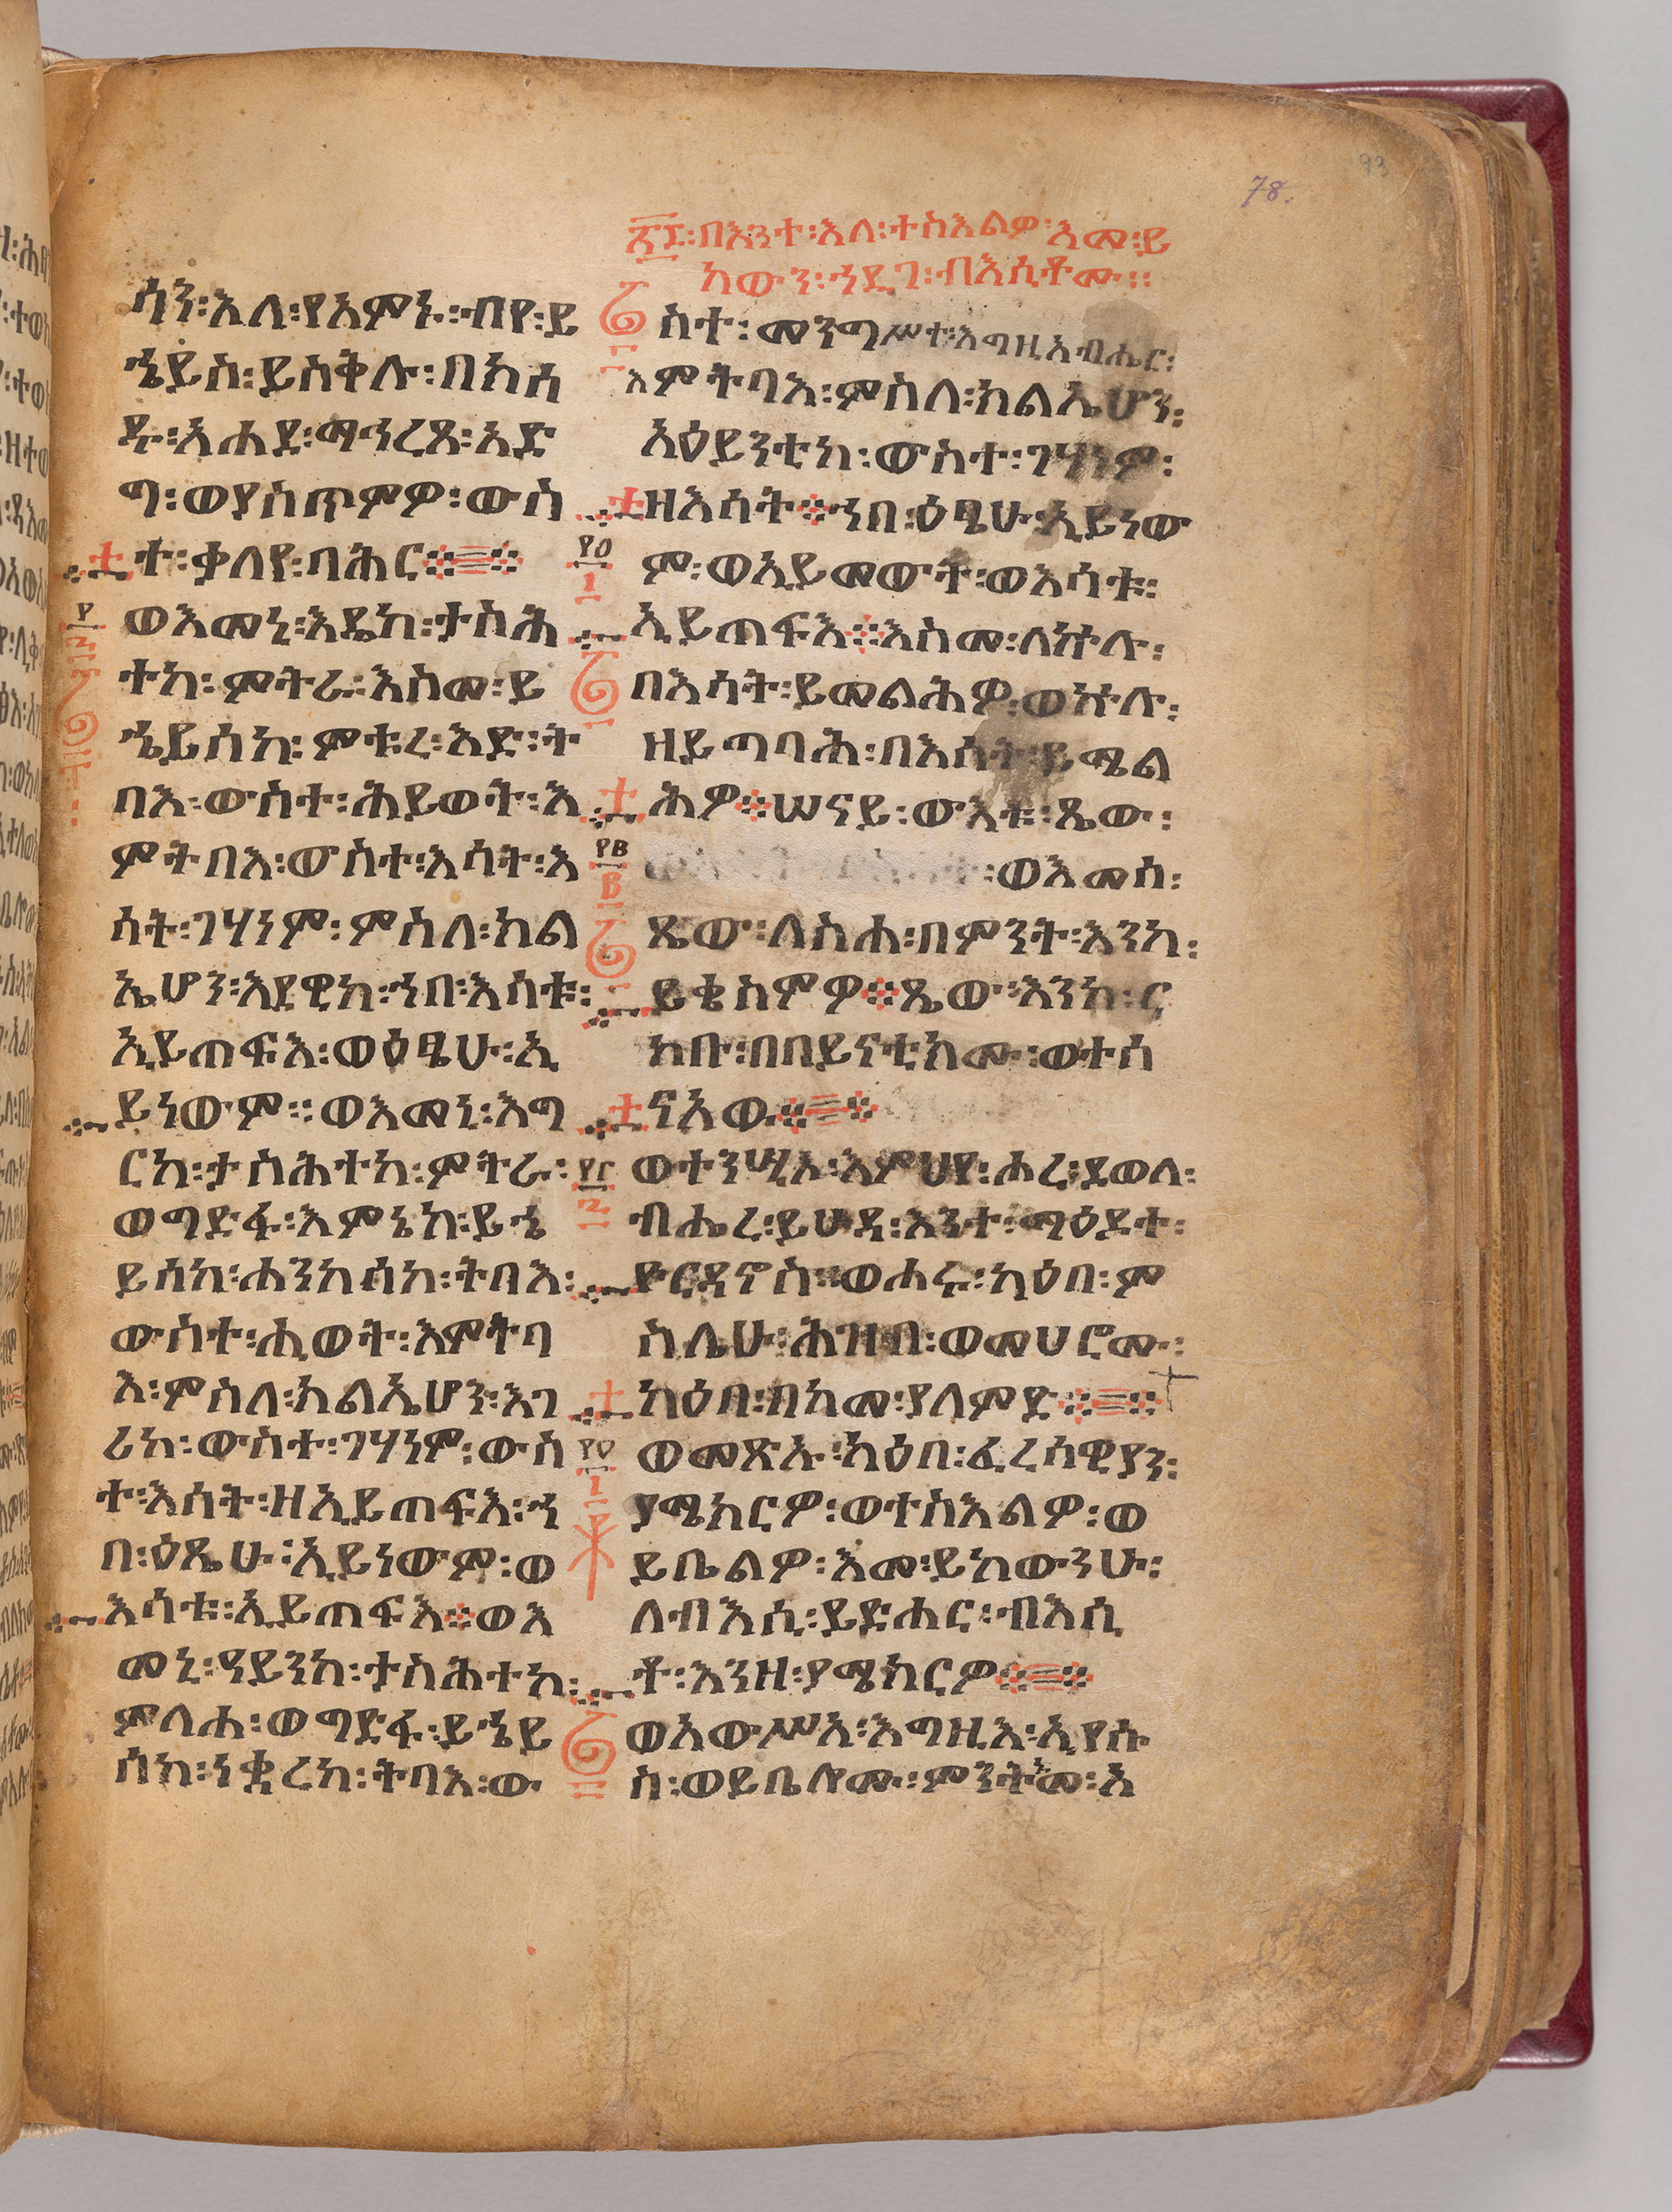 78.
93
፳፮፡በእንተ፡እለ፡ተስእልዎ፡እመ፡ይ
ከውን፡ኀዲገ፡ብእሲቶሙ።
ሳን፡እለ፡የአምኑ፡ብየ፡ይ
ኄይስ፡ይስቅሉ፡በክሳ
ዱ፡አሐደ፡ማኅረጸ፡አድ
ግ፡ወያስጥምዎ፡ውስ
ተ፡ቀላየ፡ባሕር
ወእመኒ፡እዴከ፡ታስሕ
ተከ፡ምትራ፡እስመ፡ይ
ኄይሰከ፡ምቱረ፡እድ፡ት
ባእ፡ውስተ፡ሕይወት፡እ
ምትበእ፡ውስተ፡እሳት፡እ
ሳት፡ገሃነም፡ምስለ፡ክል
ኤሆን፡እደዊከ፡ኀበ፡እሳቱ፡
ኢይጠፍእ፡ወዕፄሁ፡ኢ
ይነውም።ወእመኒ፡እግ
ርከ፡ታስሕተከ፡ምትራ፡
ወግድፋ፡እምኔከ፡ይኄ
ይሰከ፡ሐንካሰከ፡ትባእ፡
ውስተ፡ሒወት፡እምትባ
እ፡ምስለ፡ክልኤሆን፡እገ
ሪከ፡ውስተ፡ገሃነም፡ውስ
ተ፡እሳት፡ዘኢይጠፍእ፡ኀ
በ፡ዕጼሁ፡ኢይነውም፡ወ
እሳቱ፡ኢይጠፍእ፡ወእ
መኒ፡ዓይንከ፡ታስሕተከ፡
ምላሐ፡ወግድፋ፡ይኄይ
ሰከ፡ነቋረከ፡ትባእ፡ው
ስተ፡መንግሥተ፡እግዚአብሔር፡
እምትባእ፡ምስለ፡ክልኤሆን፡
አዕይንቲከ፡ውስተ፡ገሃነም፡
ዘእሳት፡ኀበ፡ዕፄሁ፡ኢይነው
ም፡ወኢይመውት፡ወእሳቱ፡
ኢይጠፍእ፡እስመ፡ለኵሉ፡
በእሳት፡ይመልሕዎ፡ወኵሉ፡
ዘይጣባሕ፡በእሳት፡ይሜል
ሕዎ፡ሠናይ፡ውእቱ፡ጼው፡
፡ወእመሰ፡
ጼው፡ለስሐ፡በምንት፡እንከ፡
ይቄስምዎ፡ጼው፡እንከ፡ር
ከቡ፡በበይናቲክሙ፡ወተሰ
ናአው
ወተንሢኦ፡እምህየ፡ሖረ፡ደወለ፡
ብሔረ፡ይሁዳ፡እንተ፡ማዕደተ፡
ዮርዳኖስ።ወሐሩ፡ካዕበ፡ም
ስሌሁ፡ሕዝብ፡ወመሀሮሙ፡
ከዕበ፡በከመ፡ያለምድ
ወመጽኡ፡ካዕበ፡ፈረሳዊያን፡
ያሜክርዎ፡ወተስእልዎ፡ወ
ይቤልዎ፡እመ፡ይከውንሁ፡
ለብእሲ፡ይድሐር፡ብእሲ
ቶ፡እንዘ፡ያሜክርዎ
ወአውሥአ፡እግዚእ፡ኢየሱ
ስ፡ወይቤሎሙ፡ምንትመ፡አ